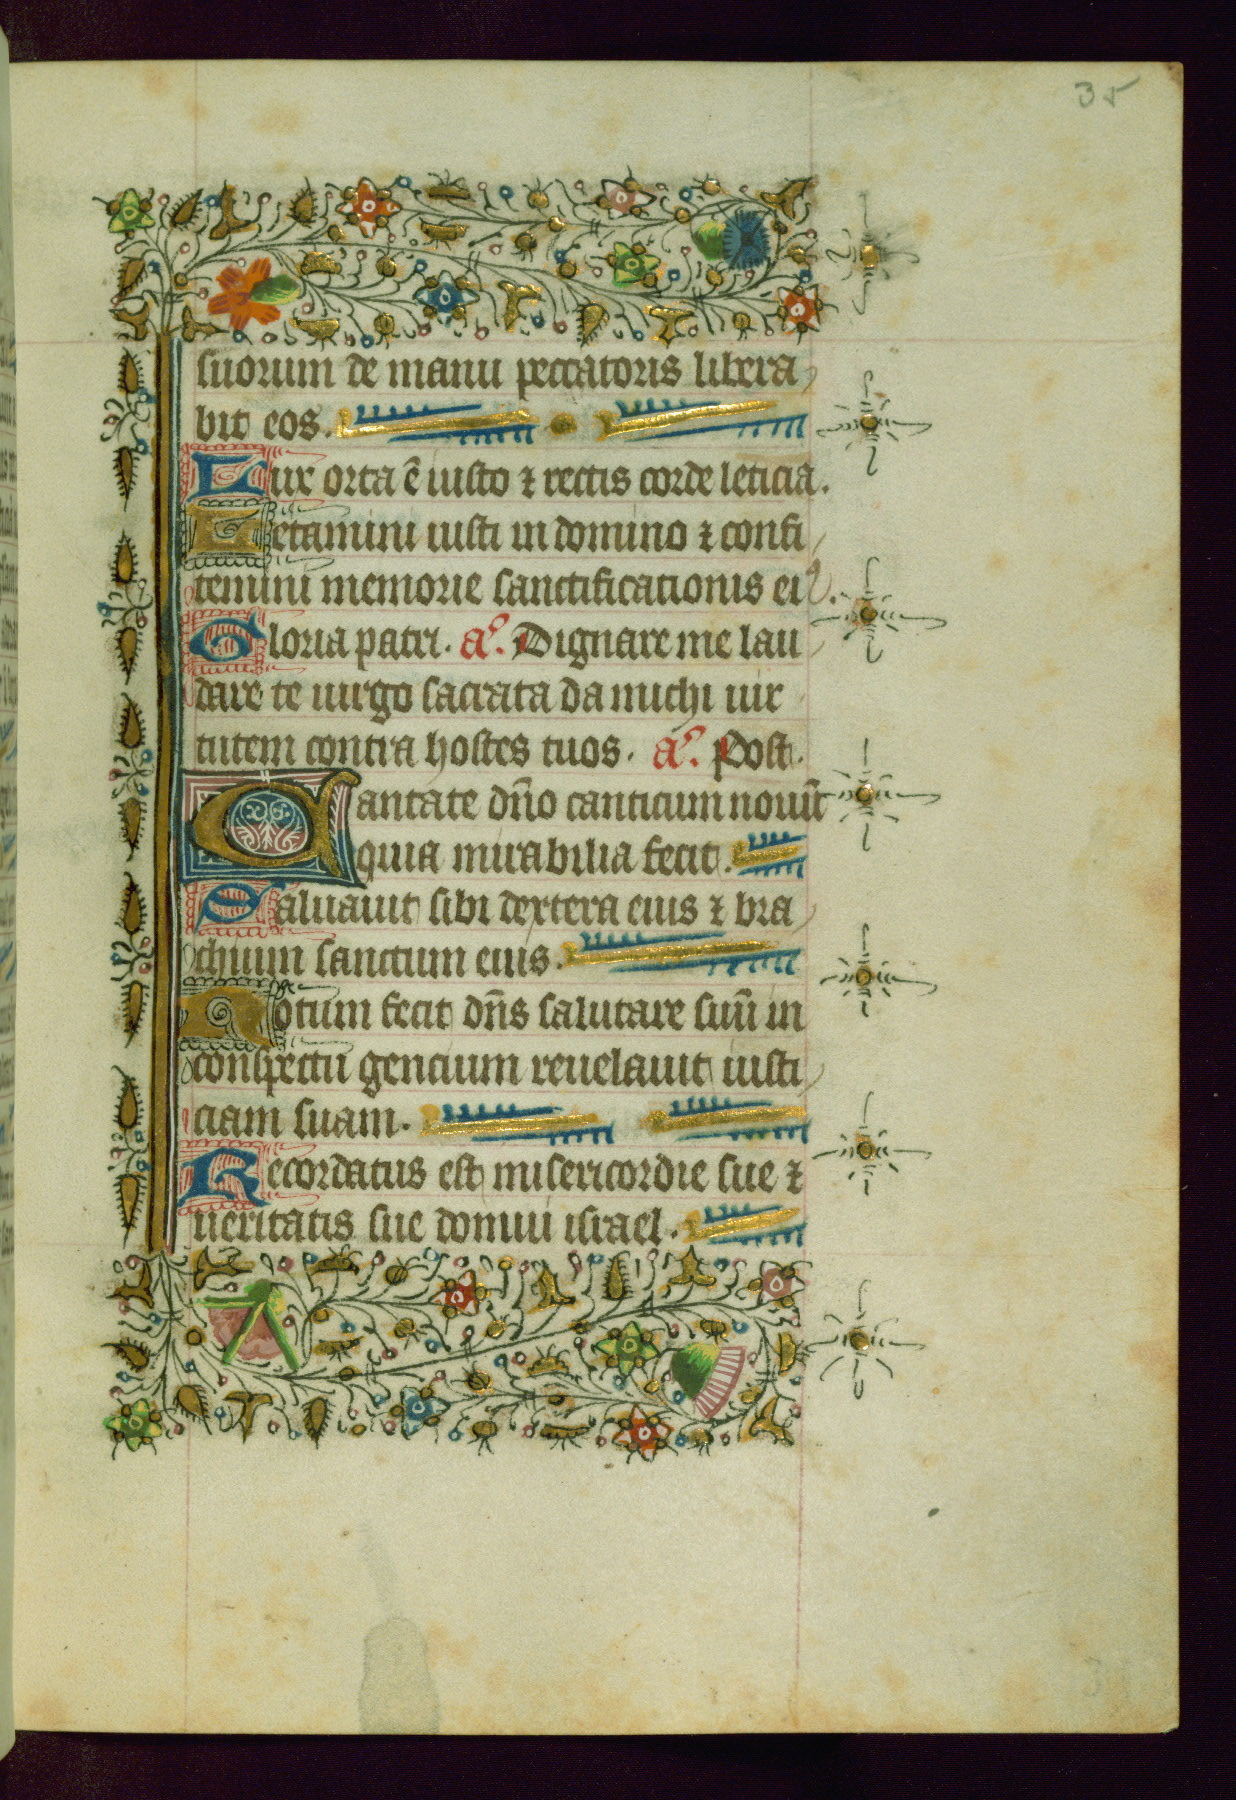 35
suorum de manu peccatoris libera
bit eos.
Lux orta ē iusto ⁊ rectis corde leticia.
Letamini iusti in domino ⁊ confi
temini memorie sanctificationis eiꝰ.
Gloria patri. aͦ. Dignare me lau
dare te uirgo sacrata da michi uir
tutem contra hostes tuos. aͦ. Post.
Cantate dn̄o canticum nouū
quia mirabilia fecit.
Saluauit sibi dextera eius ⁊ bra
chium sanctum eius.
Notum fecit dn̄s salutare suū in
conspectu gencium reuelauit iusti
ciam suam.
Recordatus est misericordie sue ⁊
ueritatis sue domui israel.